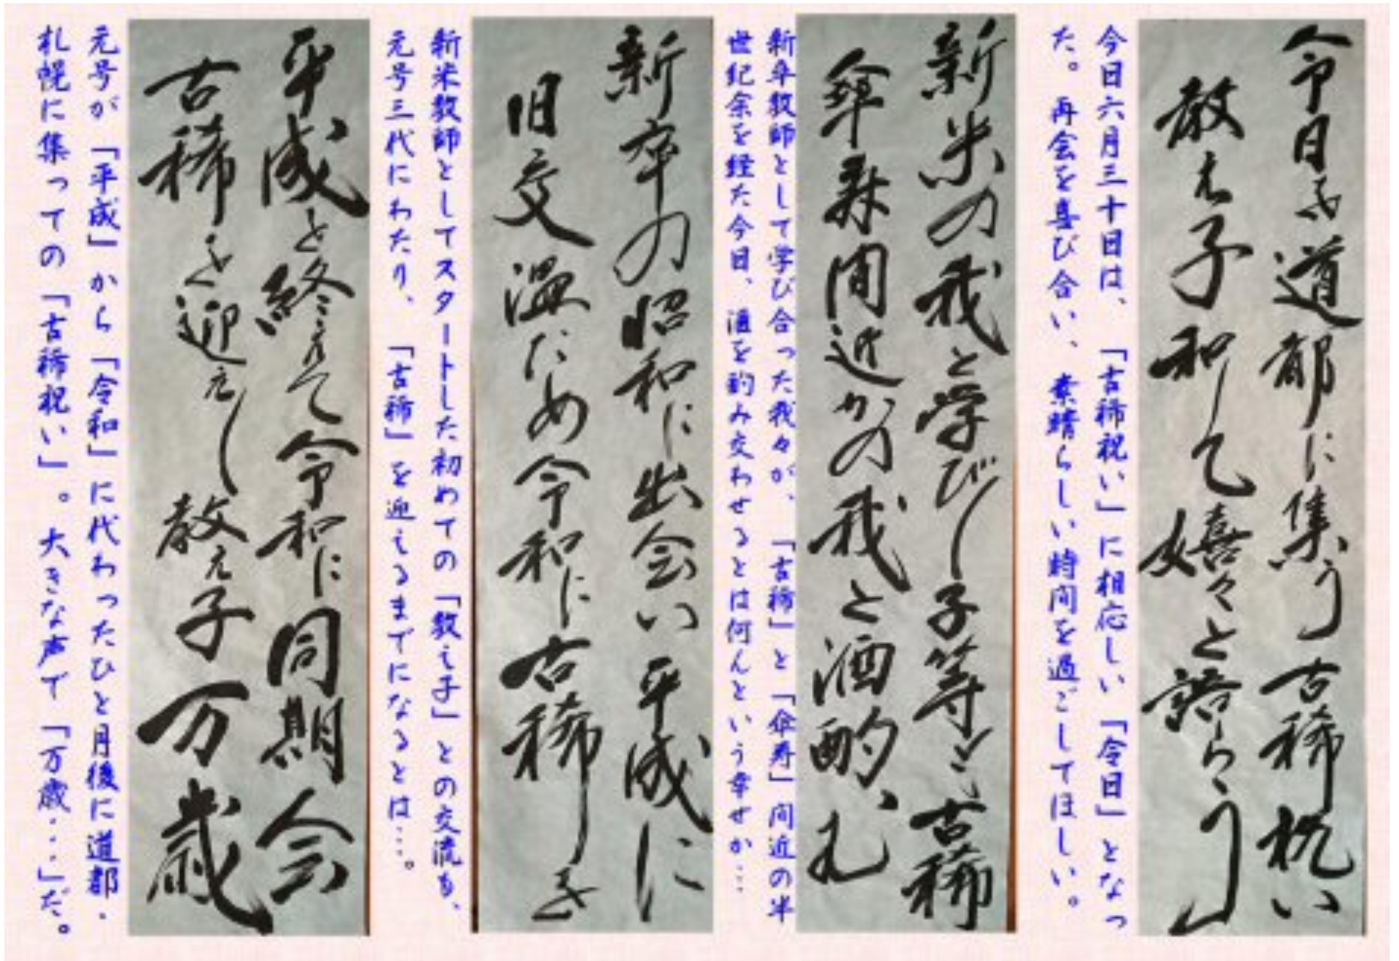 令日を道都に集う古稀祝い
教え子和して嬉々と語らう
今日六月三十日は、「古稀祝い」に相応しい「令日」となっ
た。再会を喜び合い、素晴らしい時間を過ごしてほしい。
新米の我と学びし子等と古稀
傘寿間近かの我と酒酌む
新卒教師として学び合った我々が、「古稀」と「傘寿」間近の半
世紀余を経た今日、酒を酌み交わせるとは何んという幸せか…
新卒の昭和に出会い平成に
旧交温ため令和に古稀を
新米教師としてスタートした初めての「教え子」との交流も、
元号三代にわたり、「古稀」を迎えるまでになるとは…。
平成を終えて令和に同期会
古稀を迎えし教え子万歳
元号が「平成」から「令和」に代わったひと月後に道都・
札幌に集っての「古稀祝い」。大きな声で「万歳…」だ。